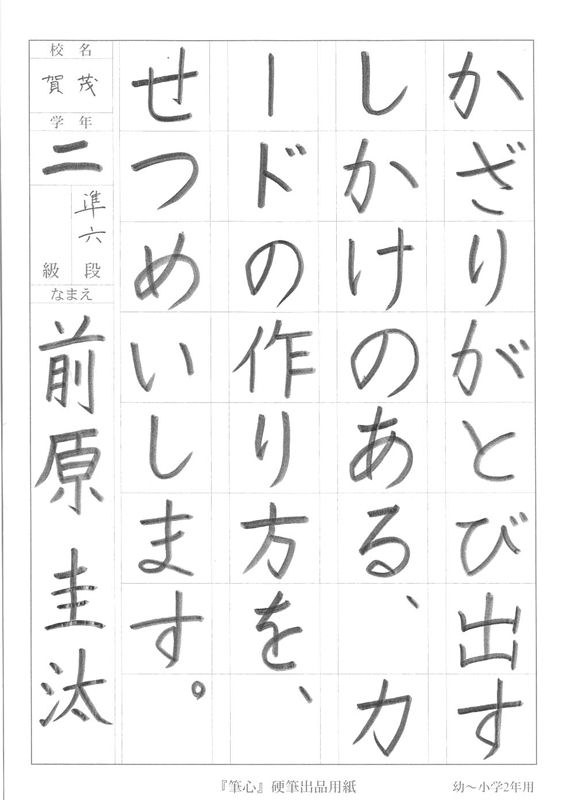 かざりがとび出す
しかけのある、カ
ードの作り方を、
せつめいします。
校名
賀茂
学年
二
準六
級 段
なまえ
前原 圭汰
『筆心』硬筆出品用紙
幼～小学2年用